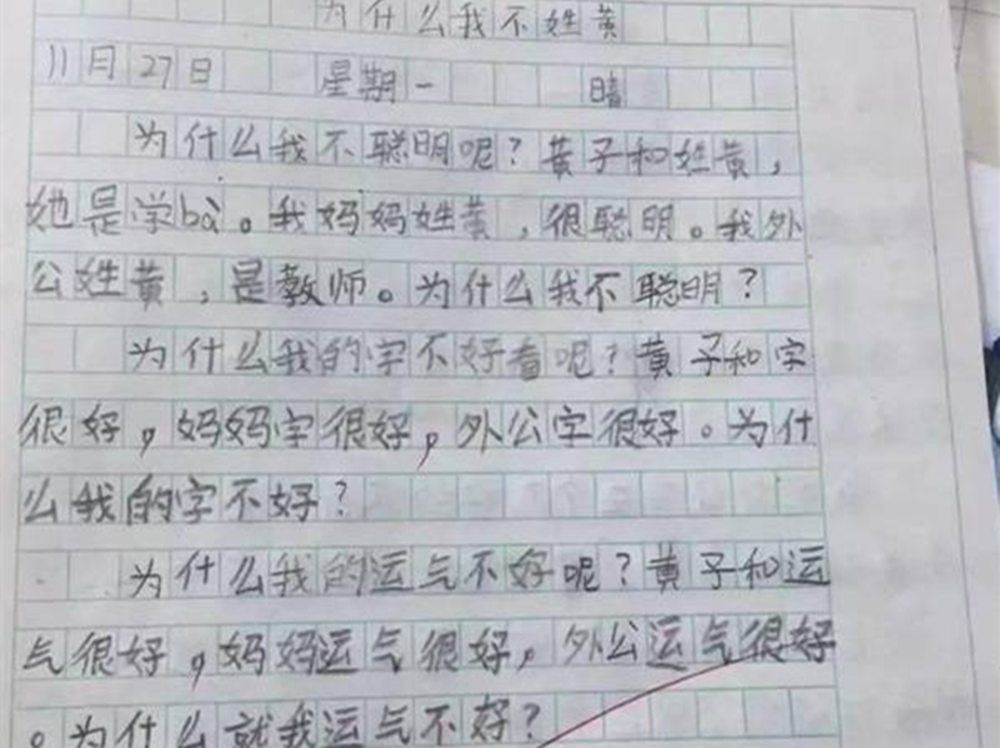 为什么我不姓黄
11月27日 星期一 晴
为什么我不聪明呢？黄子和姓黄，
她是学bà。我妈妈姓黄，很聪明。我外
公姓黄，是教师。为什么我不聪明？
为什么我的字不好看呢？黄子和字
很好，妈妈字很好，外公字很好。为什
么我的字不好？
为什么我的运气不好呢？黄子和运
气很好，妈妈运气很好，外公运气很好
。为什么就我运气不好？